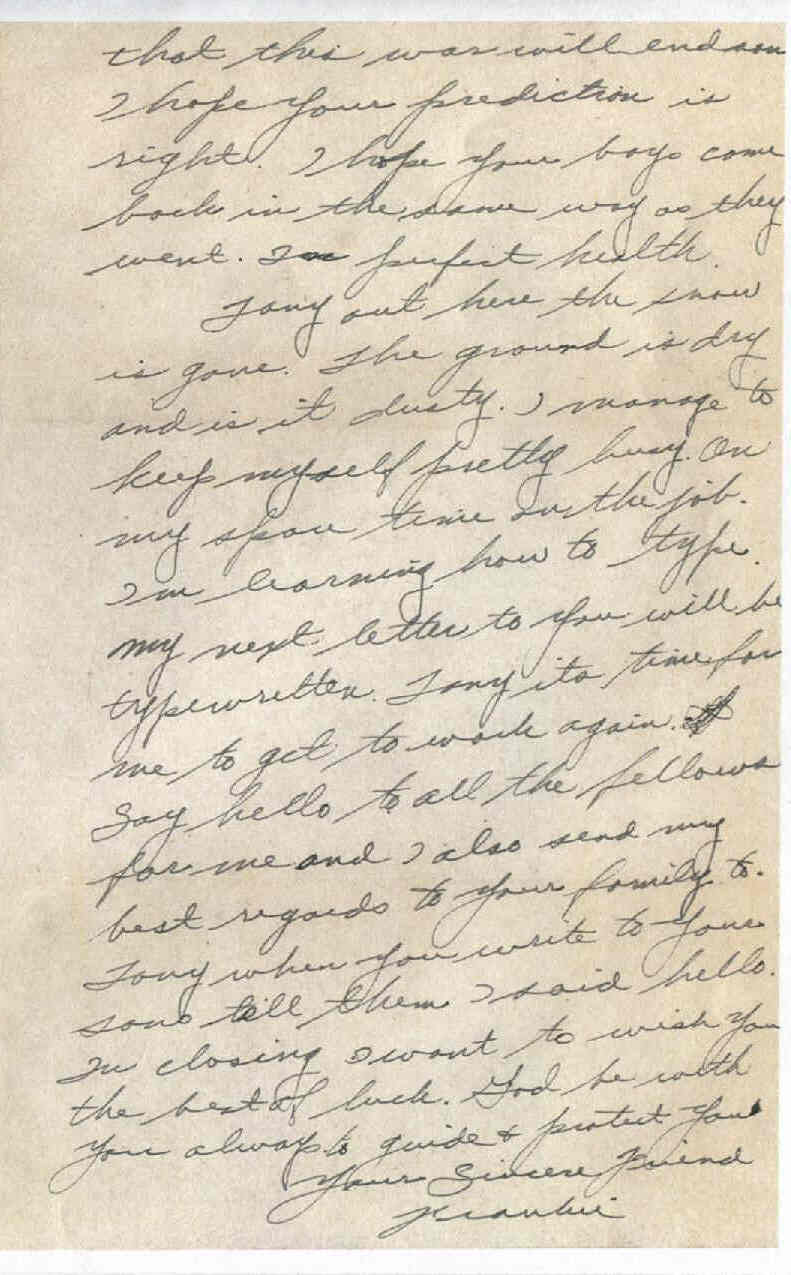 that this war will end soon
I hope your prediction is
right. I hope your boys come
back in the same way as they
went. In perfect health.
Tony out here the snow
is gone. The ground is dry
and is it dusty. I manage to
keep myself pretty busy. On
my spare time on the job.
I'm learning how to type.
my next letter to you will be
typewritten. Tony its time for
me to get to work again.
Say hello to all the fellows
for me and I also send my
best regards to your family to.
Tony when you write to your
sons tell them I said hello.
In closing I want to wish you
the best of luck. God be with
you always to guide & protect you
Your Sincere Friend
Frankie